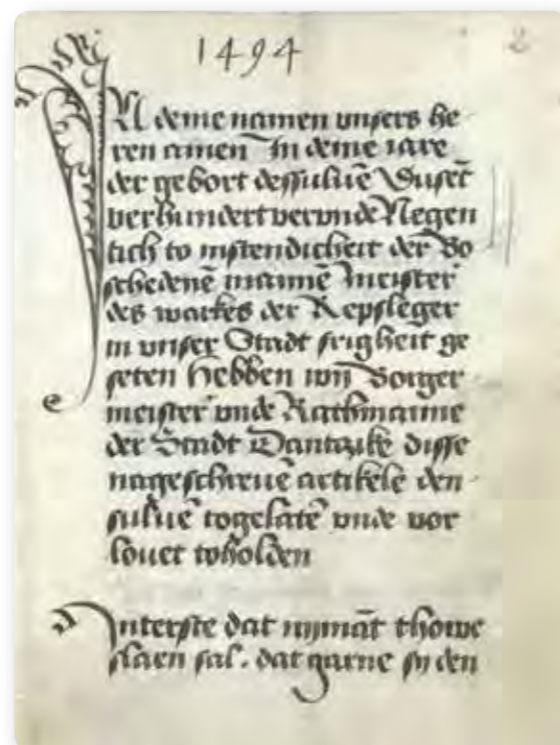 1494
2
IN deme namen unsers he
ren amen In deme iare
der gebort dessuluē Dusēt
verhundert vervnde Negen
tich to instendicheit der Bo
schedenē mannē meister
des warkes der Repsleger
in vnser Stadt frigheit ge
seten Hebben wŋ Borger
meister vnde Rathmanne
der Stadt Dantzike disse
nageschreuē artikele den
suluē togelatē vnde vor
louet toholden
Int erste dat nymāt thowe
slaen sal. dat garne sy den